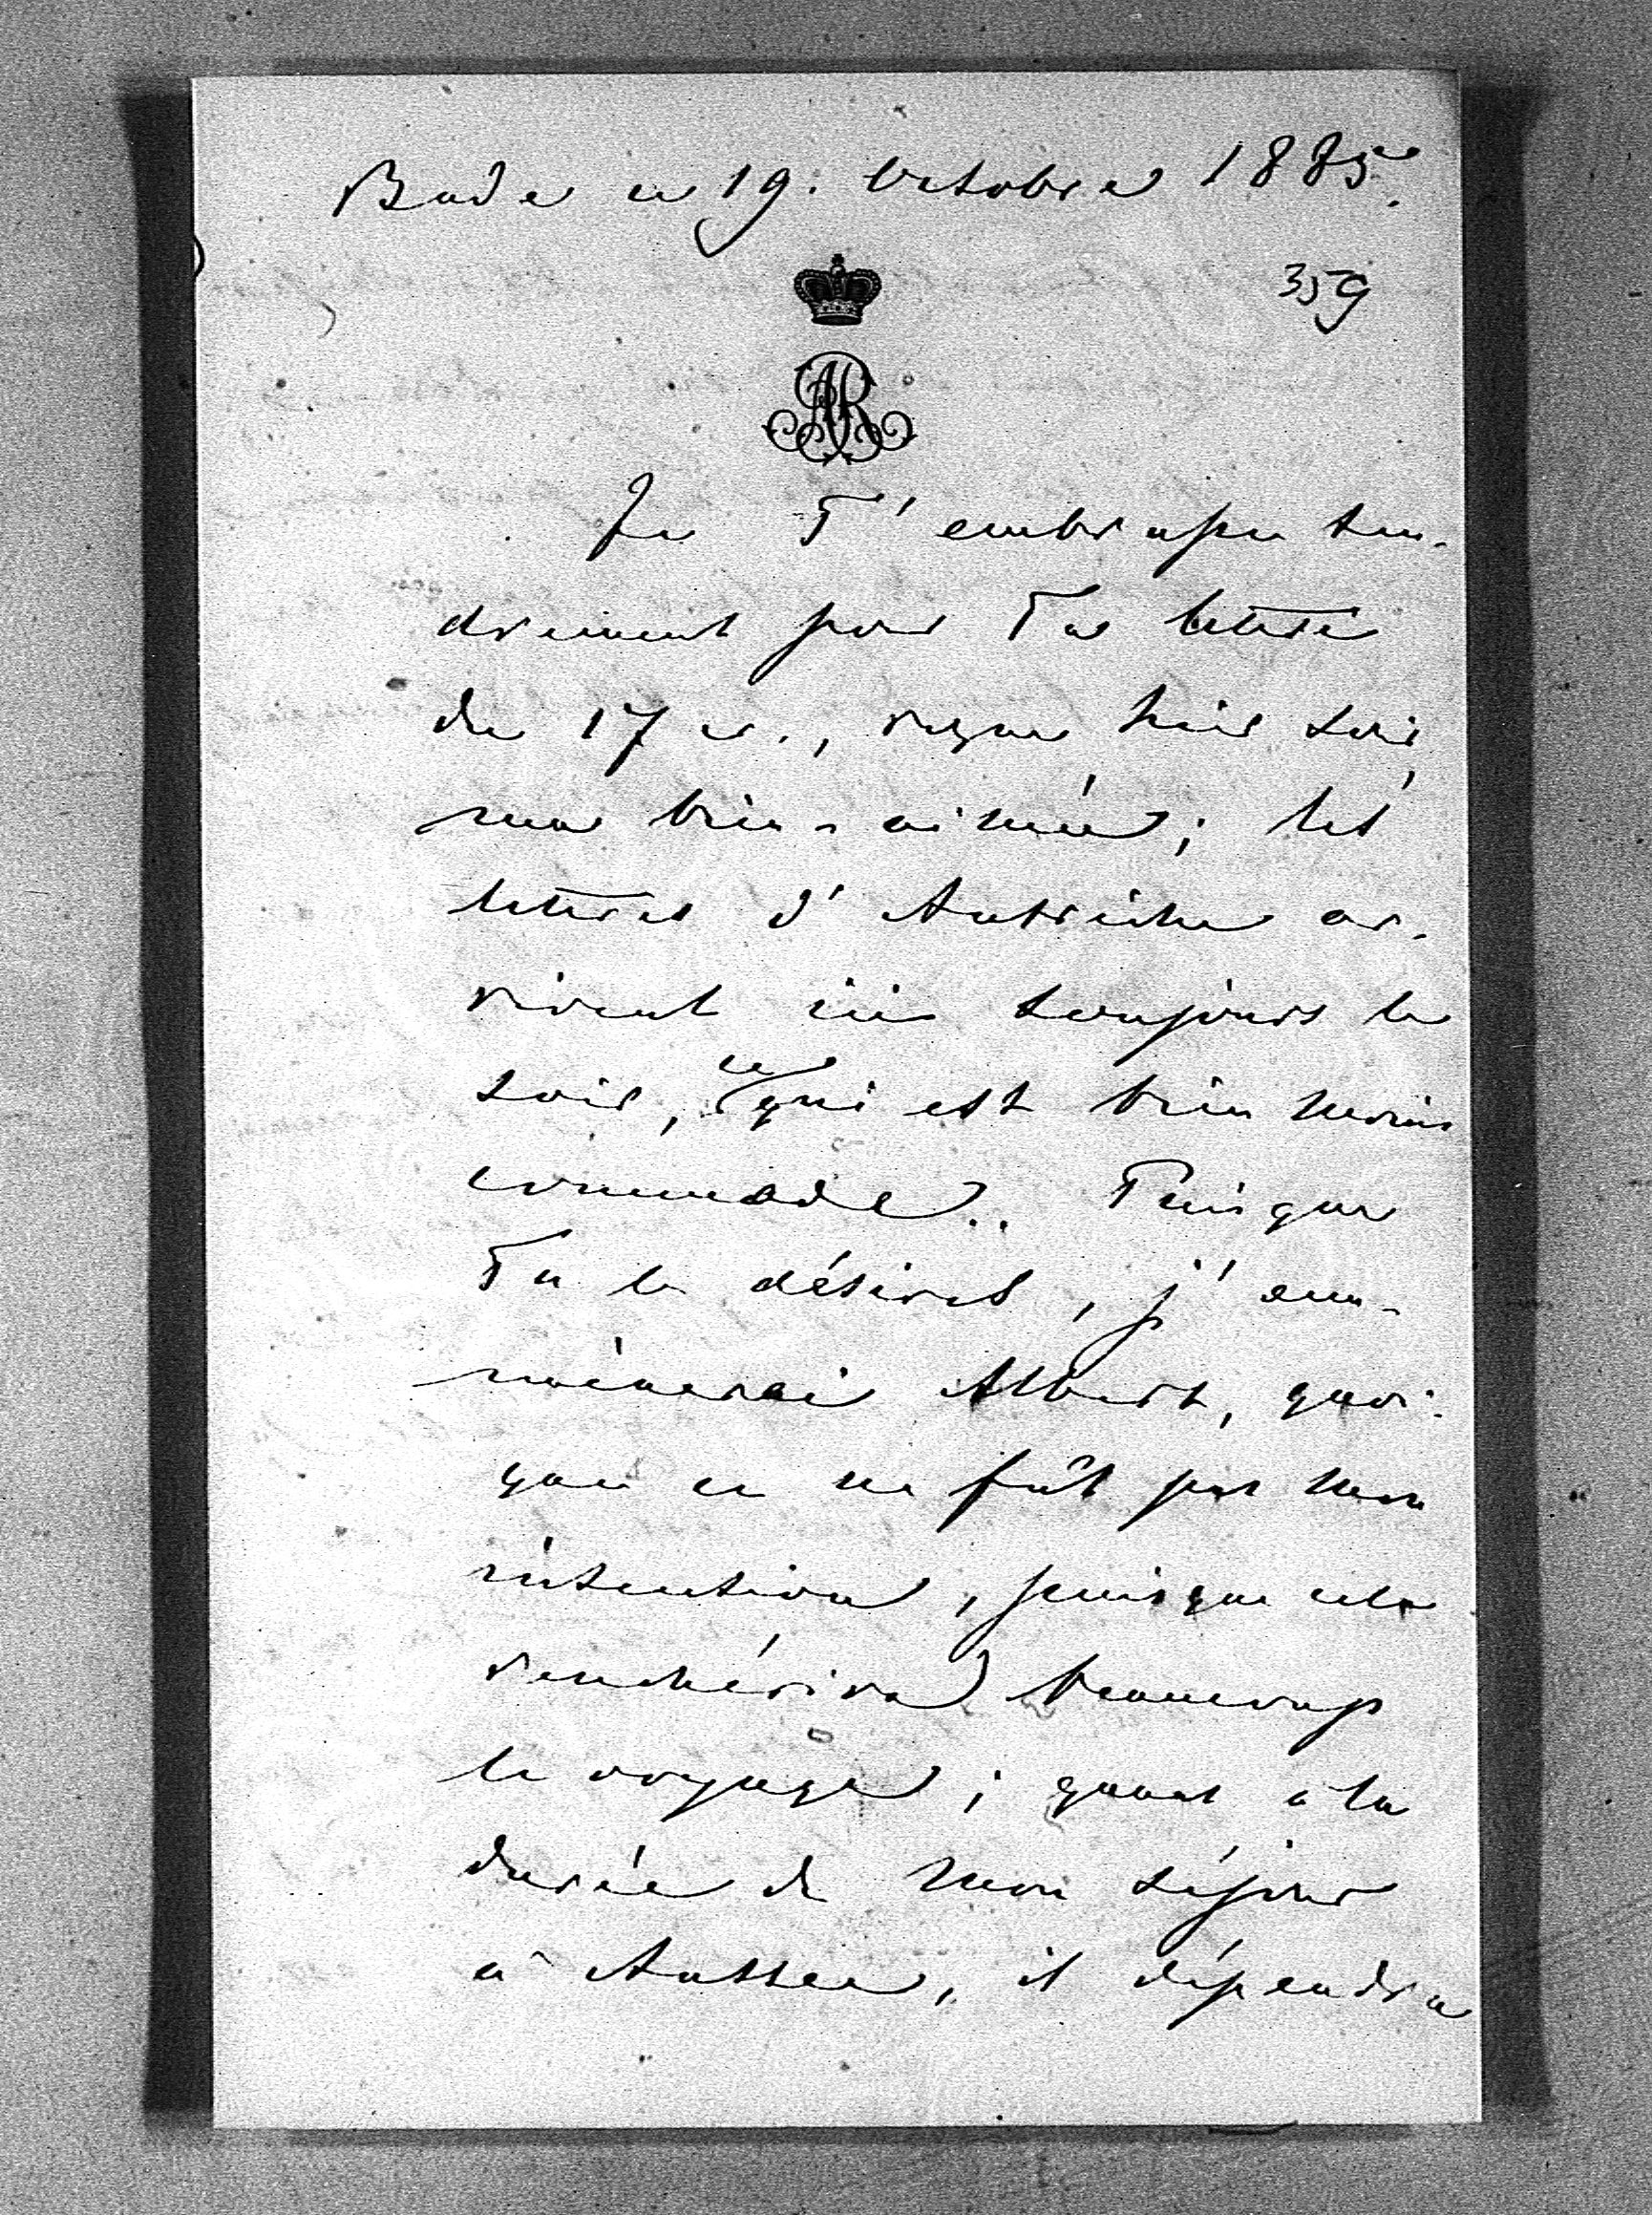 Bade ce 19. Octobre 1885.
359
AR
Je T'embrasse ten-
drement pour Ta lettre
du 17 cr., reçue hier soir,
ma bien-aimée; les
lettres d'Autriche ar-
rivent ici toujours le
soir, ce qui est bien moins
commode.. Puisque
Tu le désires, j'em-
mènerai Albert, quoi-
que ce ne fût pas mon
intention, puisque cela
renchérira beaucoup
le voyage; quant à la
durée de mon séjour
à Aussee, il dépendra